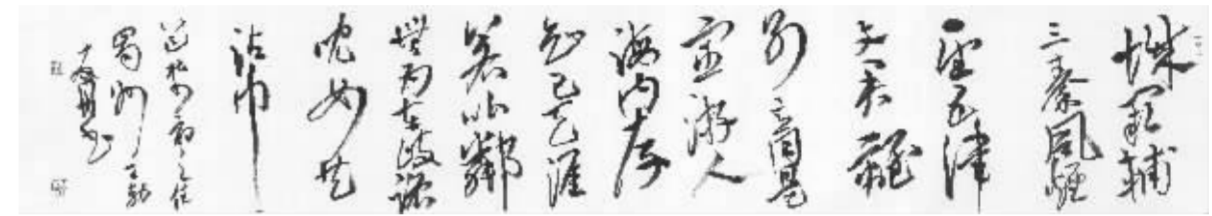 城闕輔
三秦風煙
望五津
与君離
別意同是
宦游人
海内存
知己天涯
若比鄰
無为在歧路
児女共
沾巾
送杜少府之任
蜀州 王勃
书